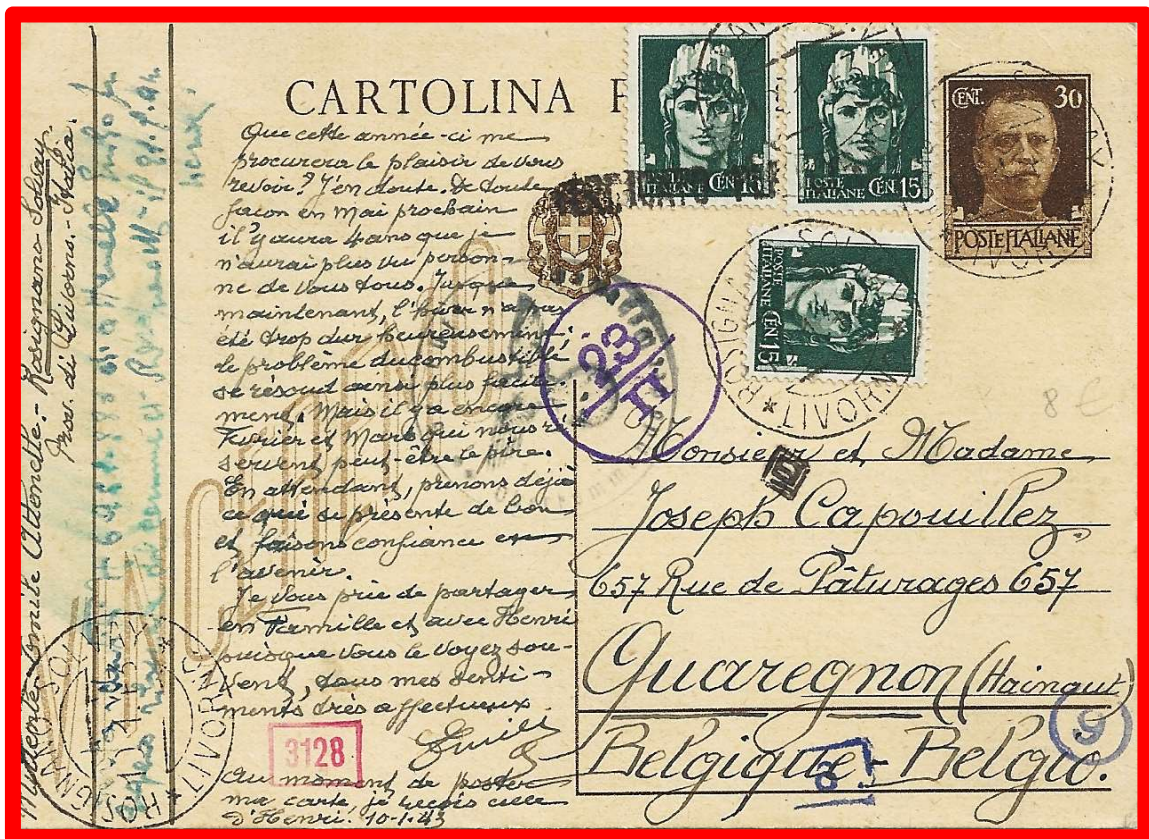 CARTOLINA P
CENT. 30
POSTE ITALIANE
POSTE ITALIANE CEN. 15
POSTE ITALIANE CEN. 15
POSTE ITALIANE CEN. 15
VINCEREMO
Que cette année-ci me
procurera le plaisir de vous
revoir? J'en doute. De toute
façon en Mai prochain
il y aura 4 ans que je
n'aurai plus vu person-
ne de vous tous. Jusque
maintenant, l'hiver n'a pas
été trop dur heureusement;
le problème du combustible
se résout ainsi plus facile-
ment. Mais il y a encore
Février et Mars qui nous ré
servent peut-être le pire.
En attendant, prenons déjà
ce qui se présente de bon
et faisons confiance en
l'avenir.
Je vous prie de partager
en Famille et avec Henri
puisque vous le voyez sou-
vent, tous mes senti-
ments très affectueux.
Emile
Au moment de poster
ma carte, je reçois celle
d'Henri. 10-1-43
Mittente: Emile Attenelle - Rosignano Solvay
Prov. di Livorno - Italia.
Monsieur et Madame
Joseph Capouillez
657 Rue de Pâturages 657
Quaregnon (Hainaut)
Belgique - Belgio.
ROSIGNANO SOLVAY * LIVORNO *
ROSIGNANO SOLVAY * LIVORNO *
23/II
3128
6
9
8 €